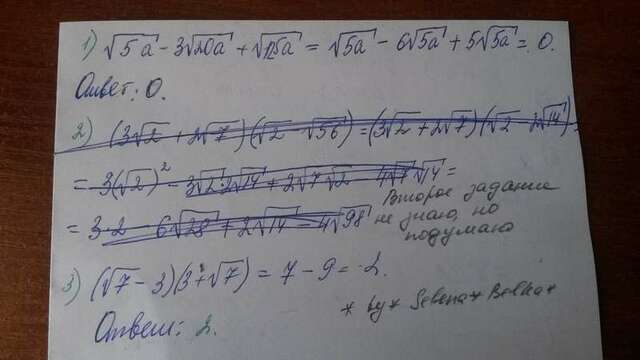 1) √5a - 3√20a + √125a = √5a - 6√5a + 5√5a = 0.
Ответ: 0.
2) (3√2 + 2√7)(√2 - √56) = (3√2 + 2√7)(√2 - 2√14) =
= 3(√2)² - 3√2·2√14 + 2√7√2 - 4√7√14 =
= 3·2 - 6√28 + 2√14 - 4√98
Второе задание
не знаю, но
подумаю
3) (√7 - 3)(3 + √7) = 7 - 9 = -2.
Ответ: 2.
* by * Selena * Belka *